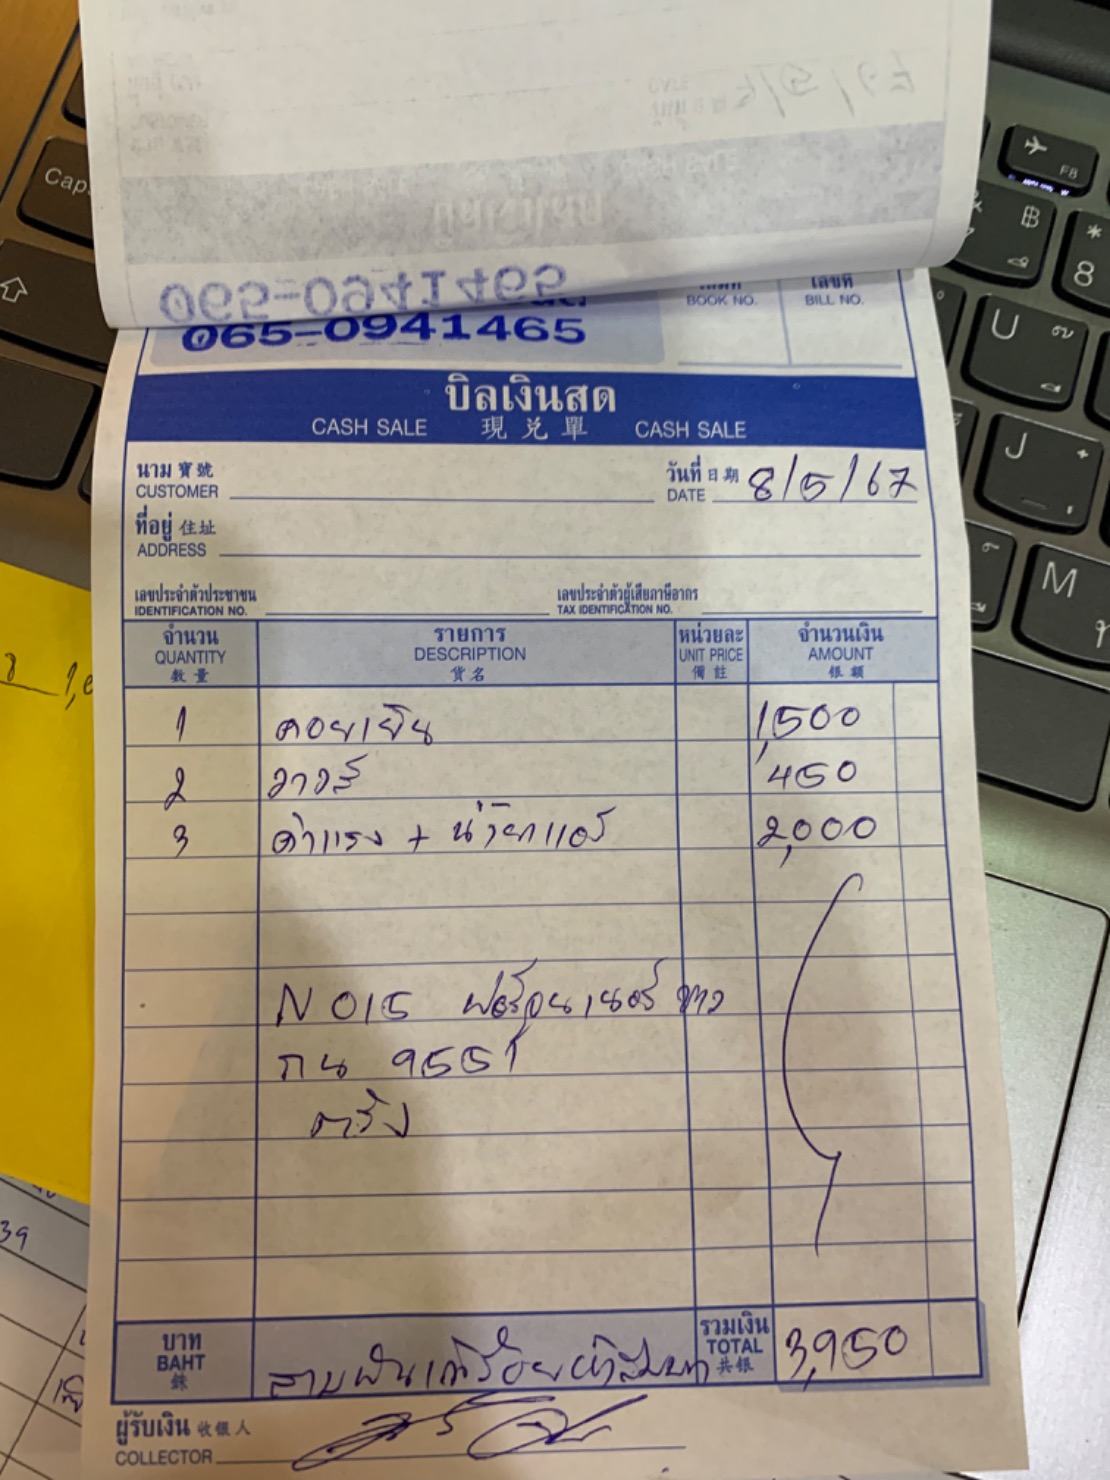 065-0941465
BOOK NO.
เลขที่
BILL NO.
บิลเงินสด
CASH SALE 現兌單 CASH SALE
นาม 寶號
CUSTOMER
วันที่ 日期
DATE 8/5/67
ที่อยู่ 住址
ADDRESS
เลขประจำตัวประชาชน
IDENTIFICATION NO.
เลขประจำตัวผู้เสียภาษีอากร
TAX IDENTIFICATION NO.
จำนวน รายการ หน่วยละ จำนวนเงิน
QUANTITY DESCRIPTION UNIT PRICE AMOUNT
數量 貨名 備註 銀額
1 คอยเย็น 1,500
2 วาวส์ 450
3 ค่าแรง + น้ำยาแอร์ 2,000
N 015 ฟอร์จูนเนอร์ ขาว
กน 9551
ตรัง
บาท
BAHT
銖
สามพันเก้าร้อยห้าสิบบาท
รวมเงิน
TOTAL
共銀
3,950
ผู้รับเงิน 收銀人
COLLECTOR
Caps
F8
B
*
8
U
J
M
39